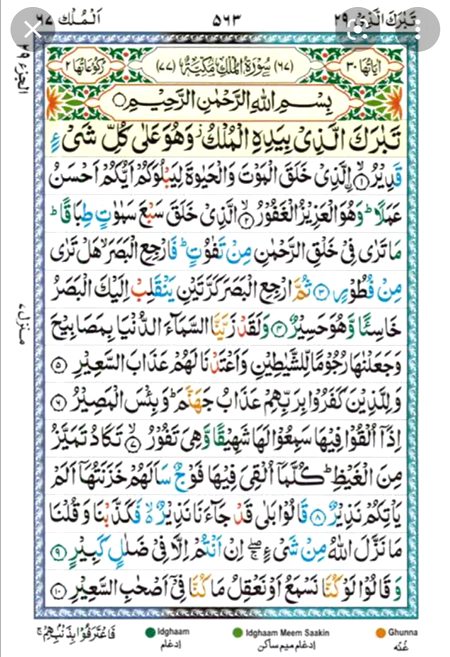 تَبٰرَكَ الَّذِیْ ٢٩
٥٦٣
اَلْمُلْك ٦٧
اٰیَاتُهَا ٣٠
(٦٧) سُوْرَةُ الْمُلْكِ مَكِّیَّةٌ (٧٧)
رُكُوْعَاتُهَا ٢
بِسْمِ اللّٰهِ الرَّحْمٰنِ الرَّحِیْمِ
تَبٰرَكَ الَّذِیْ بِیَدِهِ الْمُلْكُ ؗ وَهُوَ عَلٰی كُلِّ شَیْءٍ
قَدِیْرُۙ ﴿١﴾ اِ۟لَّذِیْ خَلَقَ الْمَوْتَ وَالْحَیٰوةَ لِیَبْلُوَكُمْ اَیُّكُمْ اَحْسَنُ
عَمَلًا ؕ وَهُوَ الْعَزِیْزُ الْغَفُوْرُۙ ﴿٢﴾ الَّذِیْ خَلَقَ سَبْعَ سَمٰوٰتٍ طِبَاقًا ؕ
مَا تَرٰی فِیْ خَلْقِ الرَّحْمٰنِ مِنْ تَفٰوُتٍ ؕ فَارْجِعِ الْبَصَرَ ۙ هَلْ تَرٰی
مِنْ فُطُوْرٍ ﴿٣﴾ ثُمَّ ارْجِعِ الْبَصَرَ كَرَّتَیْنِ یَنْقَلِبْ اِلَیْكَ الْبَصَرُ
خَاسِئًا وَّهُوَ حَسِیْرٌ ﴿٤﴾ وَلَقَدْ زَیَّنَّا السَّمَآءَ الدُّنْیَا بِمَصَابِیْحَ
وَجَعَلْنٰهَا رُجُوْمًا لِّلشَّیٰطِیْنِ وَاَعْتَدْنَا لَهُمْ عَذَابَ السَّعِیْرِ ﴿٥﴾
وَلِلَّذِیْنَ كَفَرُوْا بِرَبِّهِمْ عَذَابُ جَهَنَّمَ ؕ وَبِئْسَ الْمَصِیْرُ ﴿٦﴾
اِذَاۤ اُلْقُوْا فِیْهَا سَمِعُوْا لَهَا شَهِیْقًا وَّهِیَ تَفُوْرُۙ ﴿٧﴾ تَكَادُ تَمَیَّزُ
مِنَ الْغَیْظِ ؕ كُلَّمَاۤ اُلْقِیَ فِیْهَا فَوْجٌ سَاَلَهُمْ خَزَنَتُهَاۤ اَلَمْ
یَاْتِكُمْ نَذِیْرٌ ﴿٨﴾ قَالُوْا بَلٰی قَدْ جَآءَنَا نَذِیْرٌ ۙ۬ فَكَذَّبْنَا وَقُلْنَا
مَا نَزَّلَ اللّٰهُ مِنْ شَیْءٍ ۖۚ اِنْ اَنْتُمْ اِلَّا فِیْ ضَلٰلٍ كَبِیْرٍ ﴿٩﴾
وَقَالُوْا لَوْ كُنَّا نَسْمَعُ اَوْ نَعْقِلُ مَا كُنَّا فِیْۤ اَصْحٰبِ السَّعِیْرِ ﴿١٠﴾
فَاعْتَرَفُوْا بِذَنْۢبِهِمْ ۚ
Idghaam
اِدغَام
Idghaam Meem Saakin
اِدغَام میم ساکن
Ghunna
غُنّه
الجزء ٢٩
منزل ٧